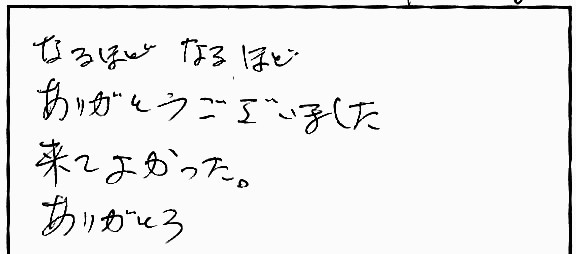 なるほど なるほど
ありがとうございました
来てよかった。
ありがとう